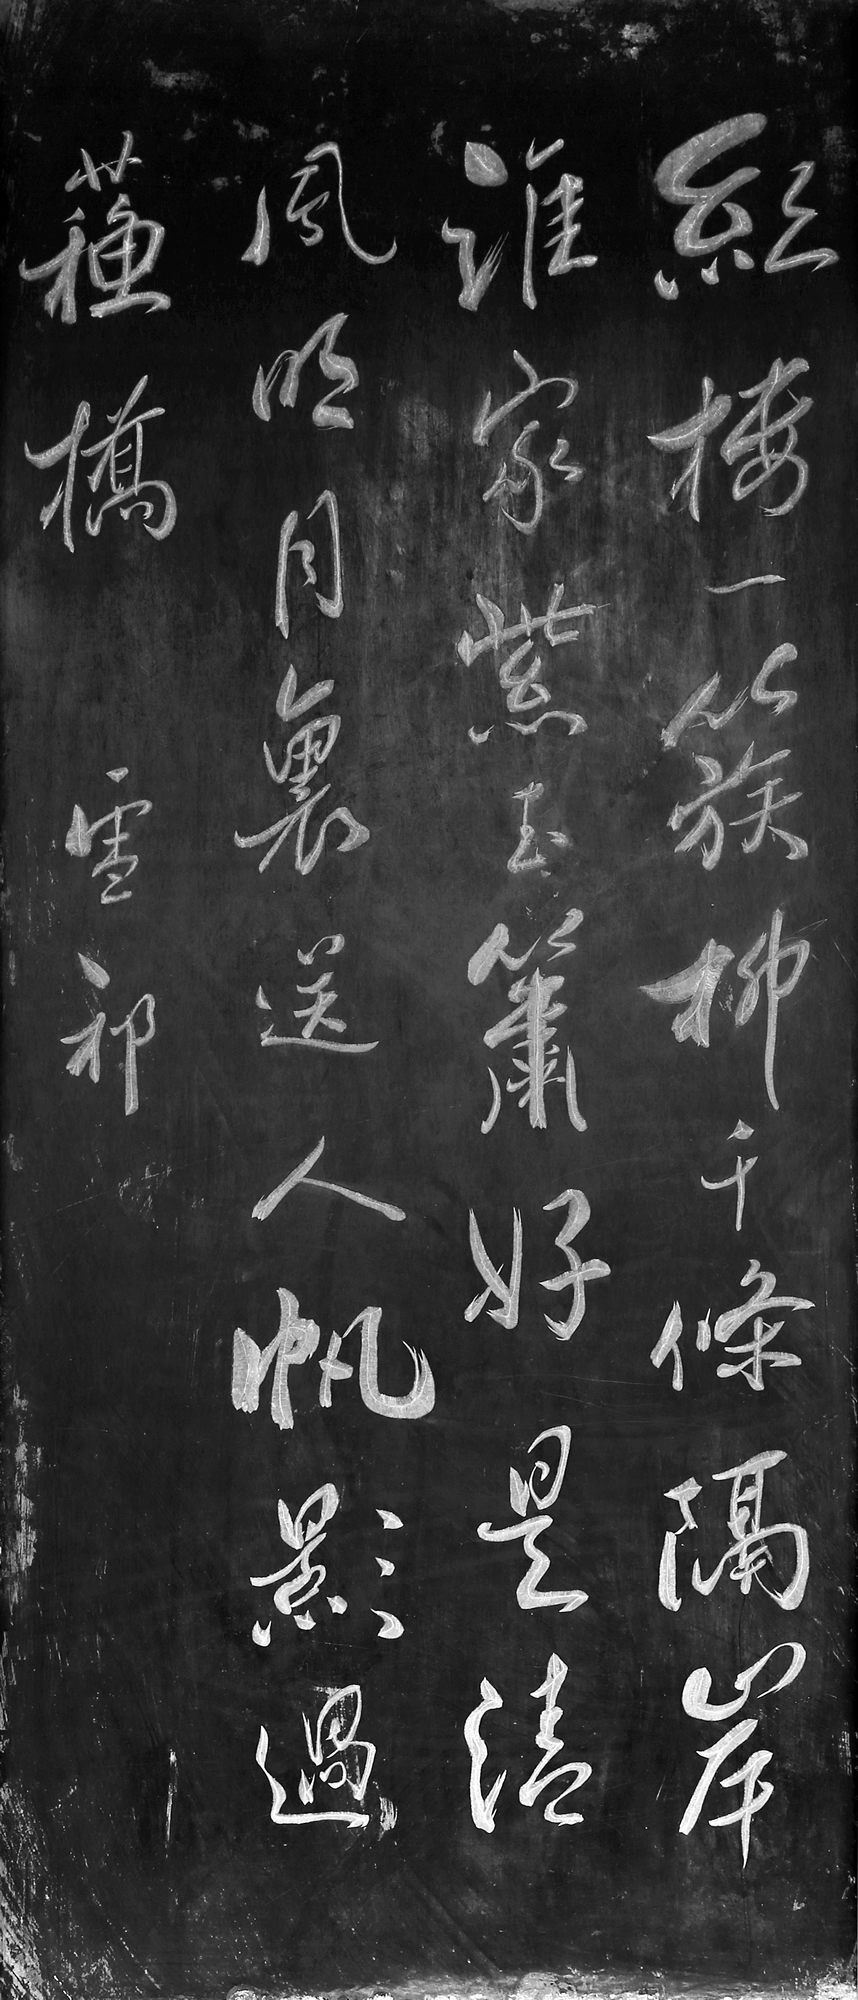 紅樓一簇柳千條隔岸
誰家紫玉簫好是清
風明月裏送人帆影過
蘓橋 雪祁